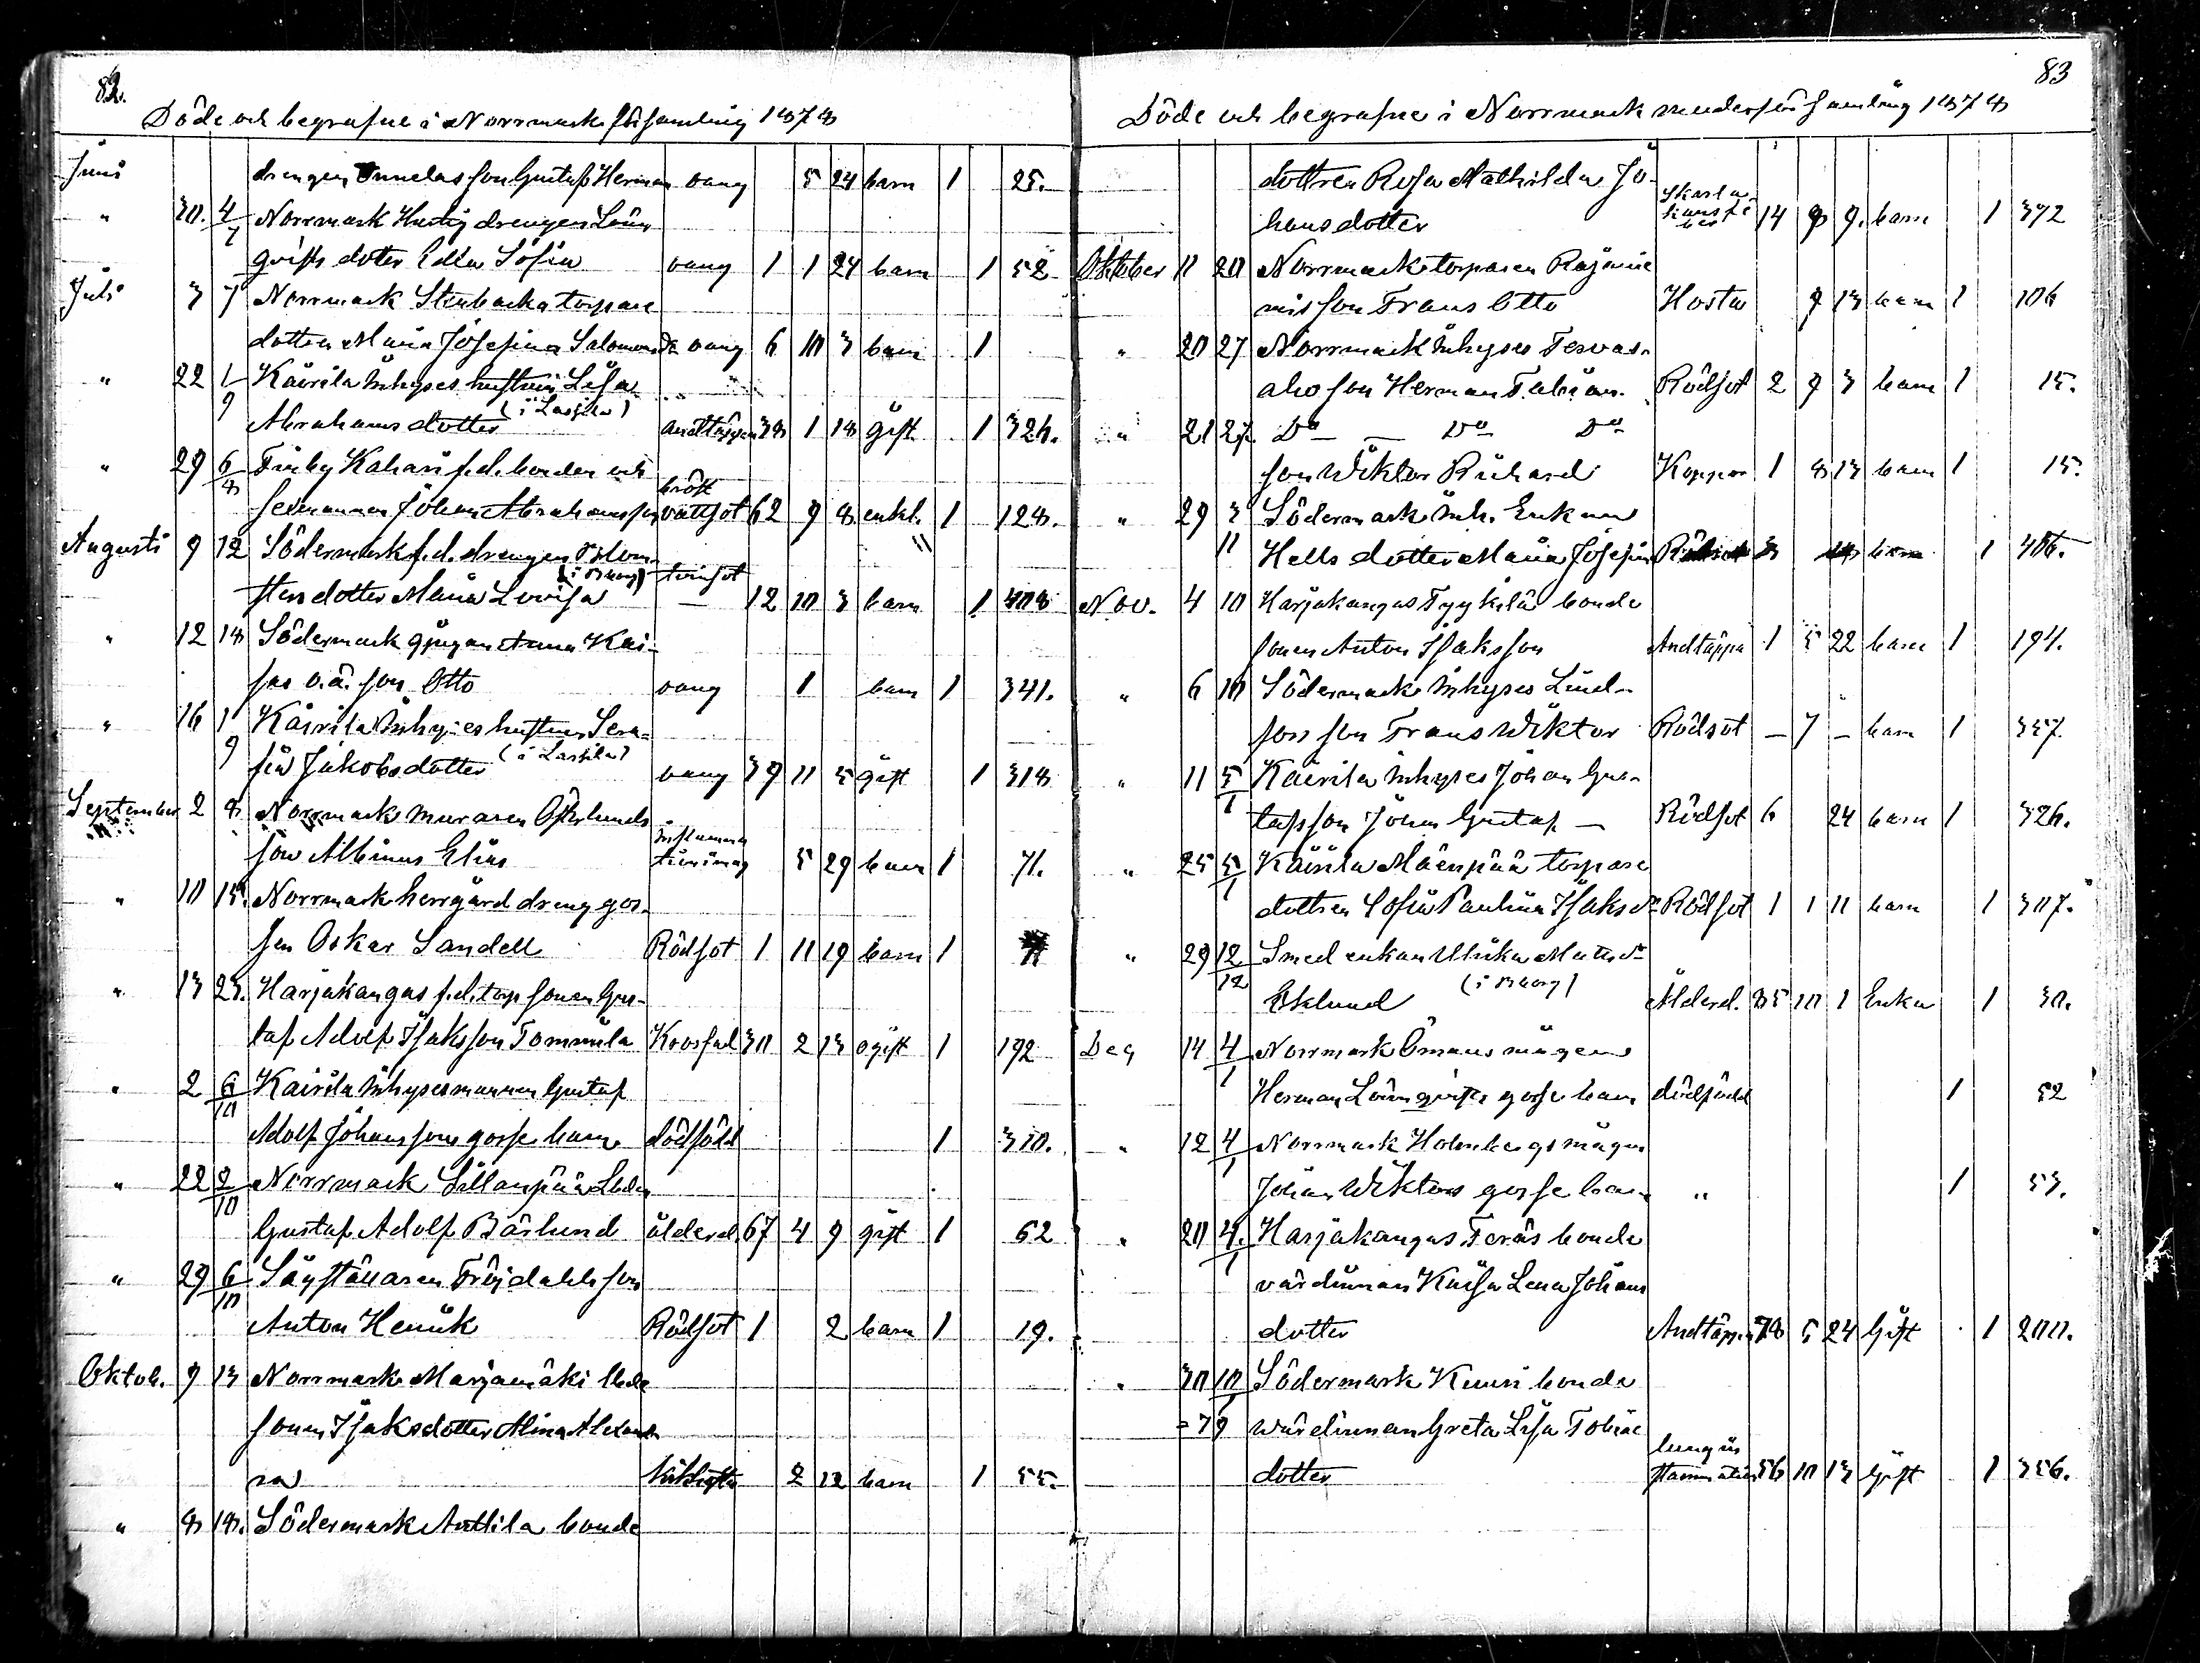 82.
Döde och begrafne i Norrmark församling 1878
Juni drengen son Gustaf Herman oang 5 24 barn 1 25.
" 30. 4/7 Norrmark drengen Lön
qvists doter Edla Sofia oang 1 1 24 barn 1 52
Juli 3 7 Norrmark Stenbacka torpare
dottren Maria Josefina Salomons Dr oang 6 10 3 barn 1
" 22 1/9 Kairila Inhyses hustrun Lisa
Abrahamsdotter (i Lassila) andtäppa 38 1 18 gift 1 326.
" 29 6/8 Finby Kahari f.d. bonden och
sexmannen Johan Abrahamsson bröst vattsot 62 9 8 enkl. 1 128.
Augusti 9 12 Södermark f.d. drengen Blom
sters dotter Maria Lovisa (i Bborg) tvinsot 12 10 3 barn 1 408
" 12 18 Södermark pigan Anna Kai-
sas o.ä. son Otto oang 1 barn 1 341.
" 16 1/9 Kairila Inhyses hustrun Sera-
fia Jakobsdotter (i Lassila) oang 39 11 5 gift 1 318
September 2 8 Norrmark muraren Österlunds
son Albinus Elias 5 29 barn 1 71.
" 10 15. Norrmark herrgård dreng gos-
sen Oskar Sandell Rödsot 1 11 19 barn 1
" 13 23. Harjakangas f.d. torp sonen Gus-
taf Adolf Isaksson Tommila Krossad 30 2 13 ogift 1 192
" 2 6/10 Kairila Inhysesmannen Gustaf
Adolf Johanssons gosse barn dödfödd 1 310.
" 22 2/10 Norrmark Sillanpää
Gustaf Adolf Bärlund ålderd. 67 4 9 gift 1 62
" 29 6/10 Sågställaren Fröjdahls son
Anton Henrik Rödsot 1 2 barn 1 19.
Oktob. 9 13 Norrmark Marjamäki
sonen Isaks dotter Alina Alexand
ra kikhosta 2 12 barn 1 55.
" 8 18. Södermark Anttila bonde
83
Döde och begrafne i Norrmark moderförsamling 1878
dottren Rosa Mathilda Jo-
hansdotter Skarlakansfeber 14 8 9. barn 1 372
Oktober 11 20 Norrmark torparen Rajanie
mis son Frans Otto Hosta 9 13 barn 1 106
" 20 27 Norrmark Inhyses Tervas-
aho son Herman Fabian Rödsot 2 9 3 barn 1 15.
" 21 27. Do — Do Do
son Wiktor Richard Koppor 1 8 13 barn 1 15.
" 29 3/11 Södermark Inh. Enkan
Hells dotter Maria Josefin barn 1 406.
Nov. 4 10 Harjakangas Tyykilä bonde
sonen Anton Isaksson Andtäppa 1 5 22 barn 1 194.
" 6 10 Södermark Inhyses Lind-
fors son Frans Wiktor Rödsot — 7 — barn 1 357.
" 11 5/1 Kairila Inhyses Johan Gus-
tafsson Johan Gustaf — Rödsot 6 24 barn 1 326.
" 25 5/1 Kairila Mäenpää torpare
dottren Sofia Paulina Isaks dr Rödsot 1 1 11 barn 1 307.
" 29 12/12 Smed enkan Ulrika Matts dr
Eklund (i Bborg) Ålderd. 85 10 1 Enka 1 30.
Dec 14 4/1 Norrmark Ömans mågen
Herman Lönnqvists gosse barn dödfödd 1 52
" 12 4/1 Norrmark Holmbergs mågen
Johan Wiktors gosse barn " 1 53.
" 20 4/1 Harjakangas Teräs bonde
värdinnan Kaisa Lena Johans
dotter Andtäppa 78 5 24 Gift 1 200.
" 30 10/1 Södermark Knuri bonde
= 79 wärdinnan Greta Lisa Tobiae
dotter lung in flammation 56 10 13 Gift 1 356.